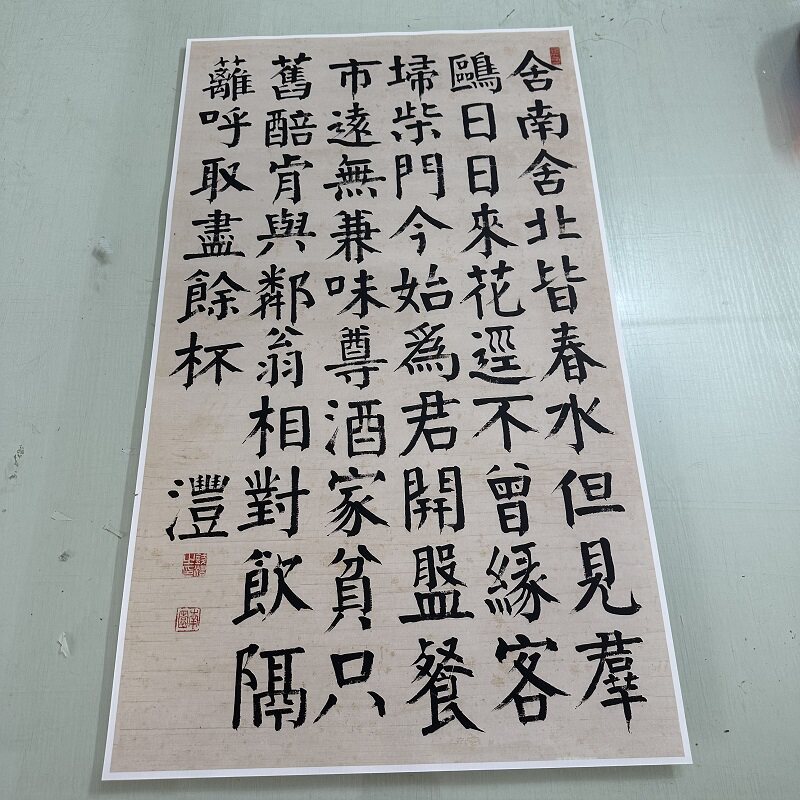 舍南舍北皆春水但見羣
鷗日日來花逕不曾緣客
埽柴門今始爲君開盤餐
市遠無兼味尊酒家貧只
舊醅肯與鄰翁相對飲隔
籬呼取盡餘杯
灃
錢灃之印
南園